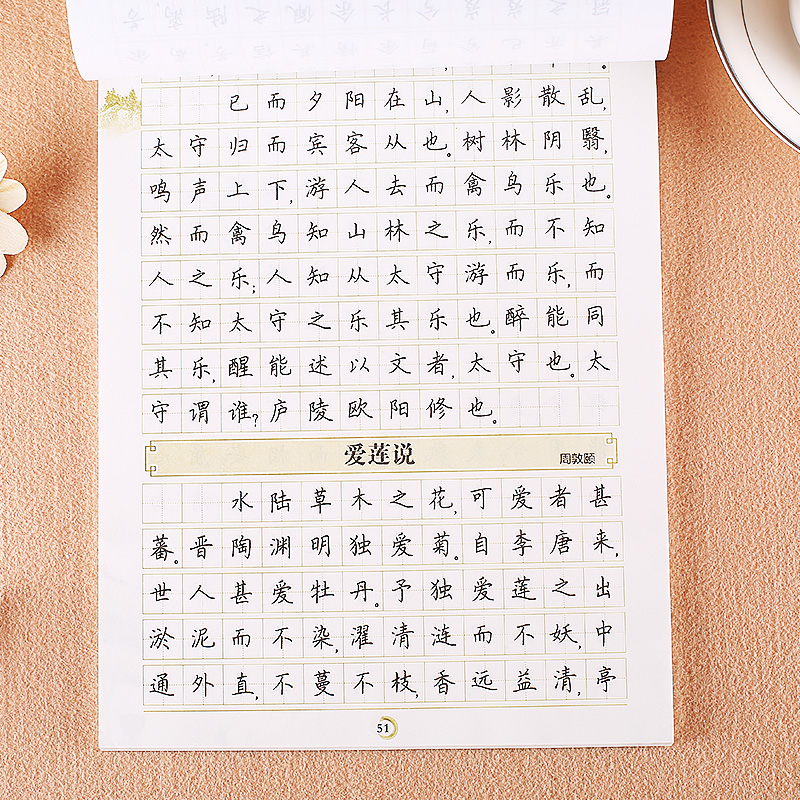 已而夕阳在山,人影散乱,
太守归而宾客从也。树林阴翳,
鸣声上下,游人去而禽鸟乐也。
然而禽鸟知山林之乐,而不知
人之乐;人知从太守游而乐,而
不知太守之乐其乐也。醉能同
其乐,醒能述以文者,太守也。太
守谓谁?庐陵欧阳修也。
爱莲说 周敦颐
水陆草木之花,可爱者甚
蕃。晋陶渊明独爱菊。自李唐来,
世人甚爱牡丹。予独爱莲之出
淤泥而不染,濯清涟而不妖,中
通外直,不蔓不枝,香远益清,亭
51